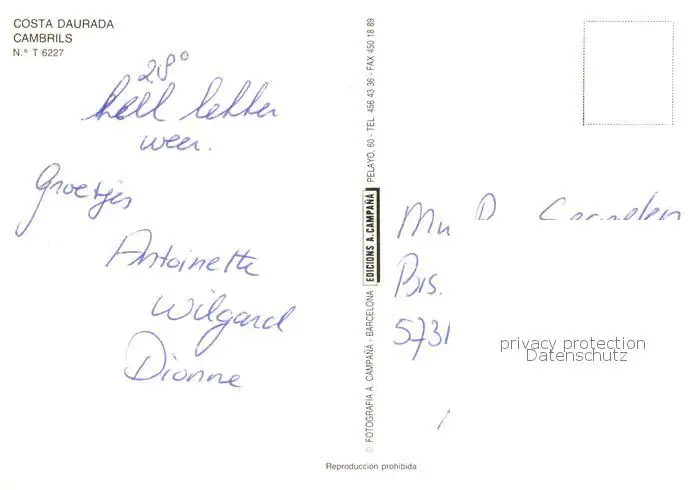 COSTA DAURADA
CAMBRILS
N.º T 6227
28°
heel lekker
weer.
Groetjes
Antoinette
Wilgard
Dionne
© FOTOGRAFIA A. CAMPAÑÁ - BARCELONA
EDICIONS A. CAMPAÑÁ
PELAYO, 60 - TEL. 456 43 36 - FAX 450 18 89
Bis.
5731
privacy protection
Datenschutz
Reproducción prohibida